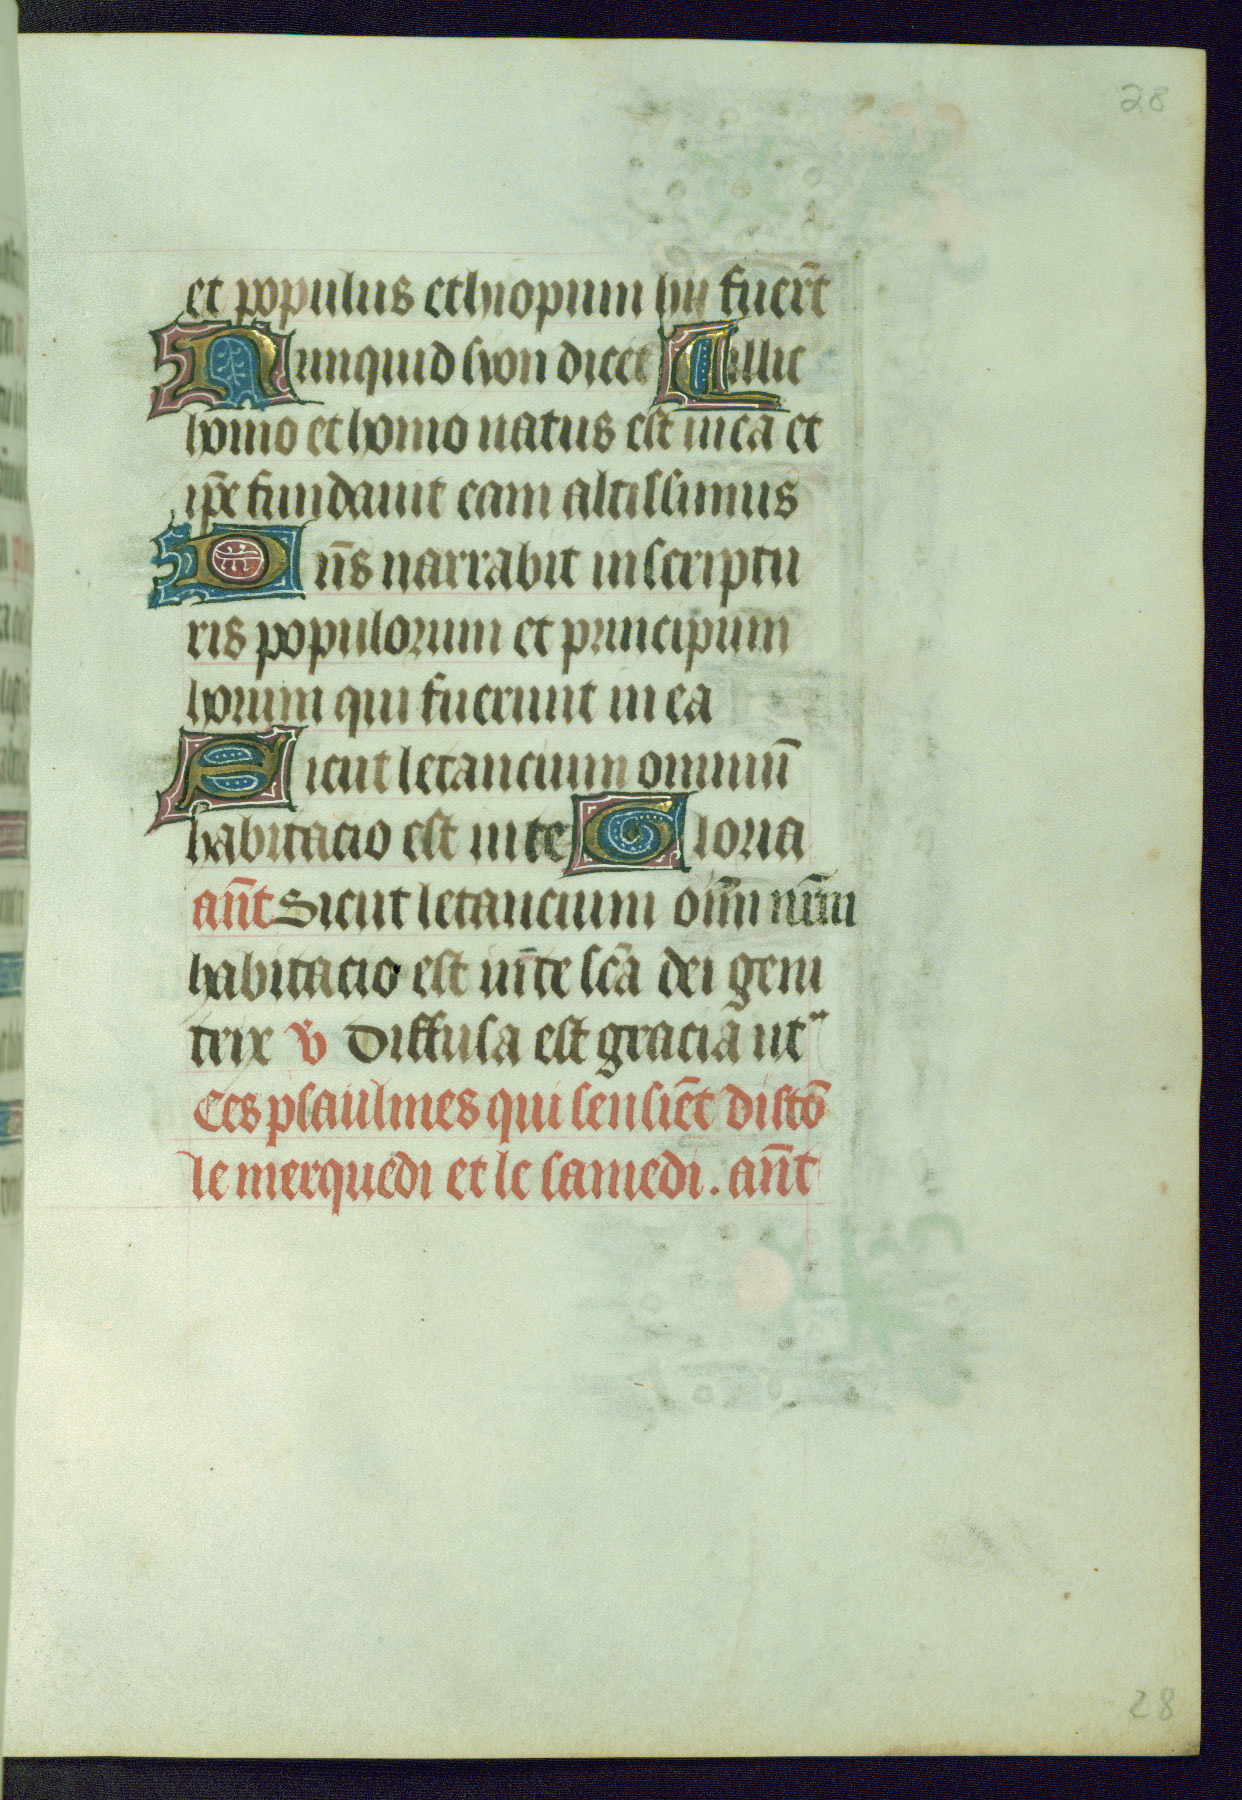 28
et populus ethiopum hii fuer̄t
Nunquid syon dicet Illic
homo et homo natus est in ea et
ip̄e fundauit eam altissimus
Dn̄s narrabit in scriptu
ris populorum et principum
horum qui fuerunt in ea
Sicut letancium omniū
habitacio est in te Gloria
an̄t Sicut letancium om̄i nr̄m
habitacio est in te sc̄a dei geni
trix v Diffusa est gracia ut
Ces psaulmes qui sensiēt distō
le merquedi et le samedi. an̄t
28